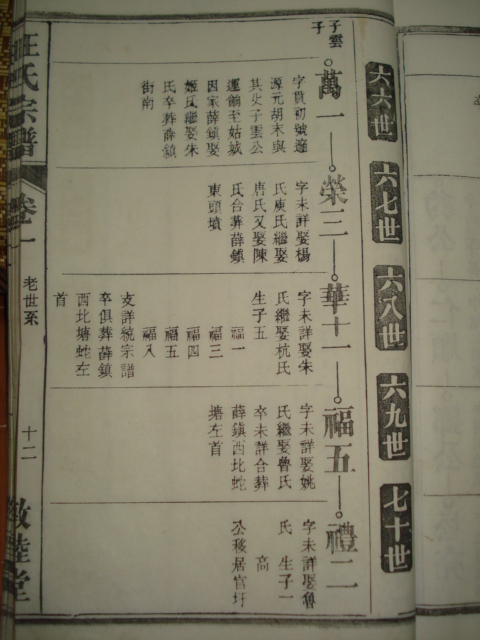 六六世
六七世
六八世
六九世
七十世
子雲
子
萬一
字貫初號達
源元胡末與
其丈子雲公
運餉至姑城
因家薛鎮娶
姬氏繼娶朱
氏卒葬薛鎮
街南
榮三
字未詳娶楊
氏庾氏繼娶
唐氏又娶陳
氏合葬薛鎮
東頭墳
華十一
字未詳娶朱
氏繼娶杭氏
生子五
福一
福三
福四
福五
福八
支詳統宗譜
卒俱葬薛鎮
西北塘蛇左
首
福五
字未詳娶姚
氏繼娶魯氏
卒未詳合葬
薛鎮西北蛇
塘左首
禮二
字未詳娶魯
氏 生子一
高
公移居官圩
汪氏宗譜
卷一
老世系
十二
敦睦堂